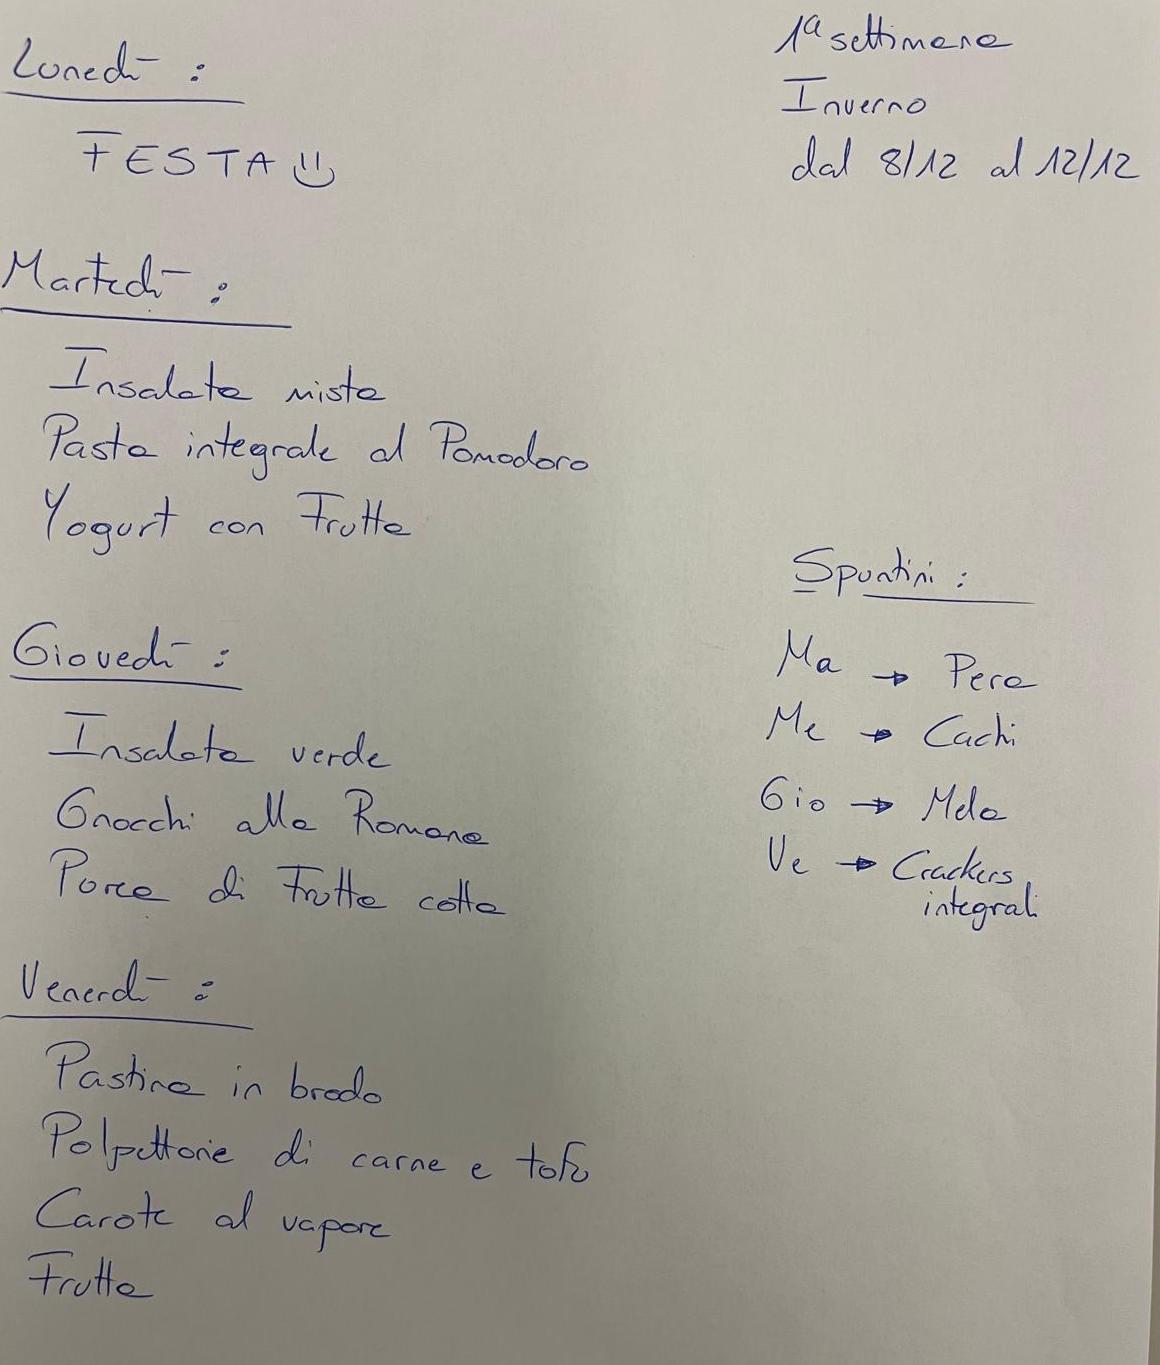 1ª settimana
Inverno
dal 8/12 al 12/12
Lunedì :
FESTA
Martedì :
Insalata mista
Pasta integrale al Pomodoro
Yogurt con Frutta
Giovedì :
Insalata verde
Gnocchi alla Romana
Purea di Frutta cotta
Venerdì :
Pastina in brodo
Polpettone di carne e tofu
Carote al vapore
Frutta
Spuntini :
Ma → Pera
Me → Cachi
Gio → Mela
Ve → Crackers
integrali